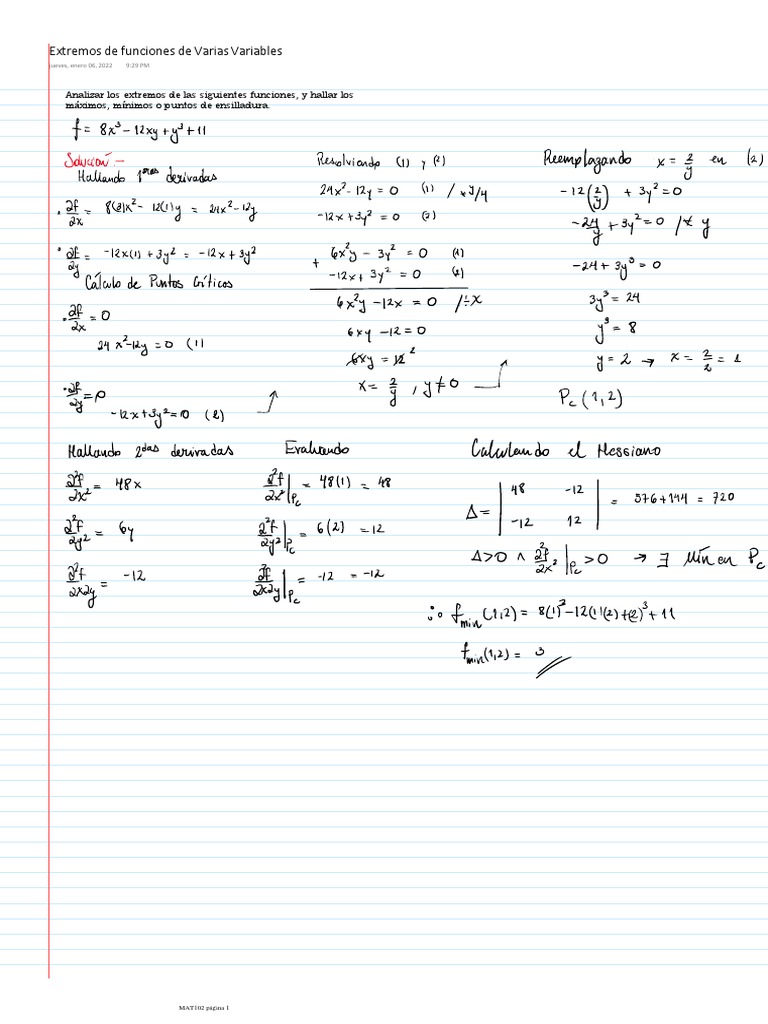 Extremos de funciones de Varias Variables
jueves, enero 06, 2022 9:29 PM
Analizar los extremos de las siguientes funciones, y hallar los
máximos, mínimos o puntos de ensilladura.
f = 8x³ - 12xy + y³ + 11
Solución:-
Hallando 1ras derivadas
• ∂f/∂x = 8(3)x² - 12(1)y = 24x² - 12y
• ∂f/∂y = -12x(1) + 3y² = -12x + 3y²
Cálculo de Puntos Críticos
• ∂f/∂x = 0
24x² - 12y = 0 (1)
• ∂f/∂y = 0
-12x + 3y² = 0 (2)
Resolviendo (1) y (2)
24x² - 12y = 0 (1) / * y/4
-12x + 3y² = 0 (2)
6x²y - 3y² = 0 (1)
+ -12x + 3y² = 0 (2)
6x²y - 12x = 0 /÷x
6xy - 12 = 0
6xy = 12 2
x = 2/y , y ≠ 0
Reemplazando x = 2/y en (2)
-12(2/y) + 3y² = 0
-24/y + 3y² = 0 /* y
-24 + 3y³ = 0
3y³ = 24
y³ = 8
y = 2 → x = 2/2 = 1
Pc (1,2)
Hallando 2das derivadas
∂²f/∂x² = 48x
∂²f/∂y² = 6y
∂²f/∂x∂y = -12
Evaluando
∂²f/∂x² |Pc = 48(1) = 48
∂²f/∂y² |Pc = 6(2) = 12
∂²f/∂x∂y |Pc = -12 = -12
Calculando el Hessiano
Δ = | 48 -12 | = 576 + 144 = 720
| -12 12 |
Δ>0 ∧ ∂²f/∂x² |Pc >0 → ∃ Mín en Pc
∴ fmin (1,2) = 8(1)² - 12(1)(2) + (2)³ + 11
fmin (1,2) = 3
MAT102 página 1